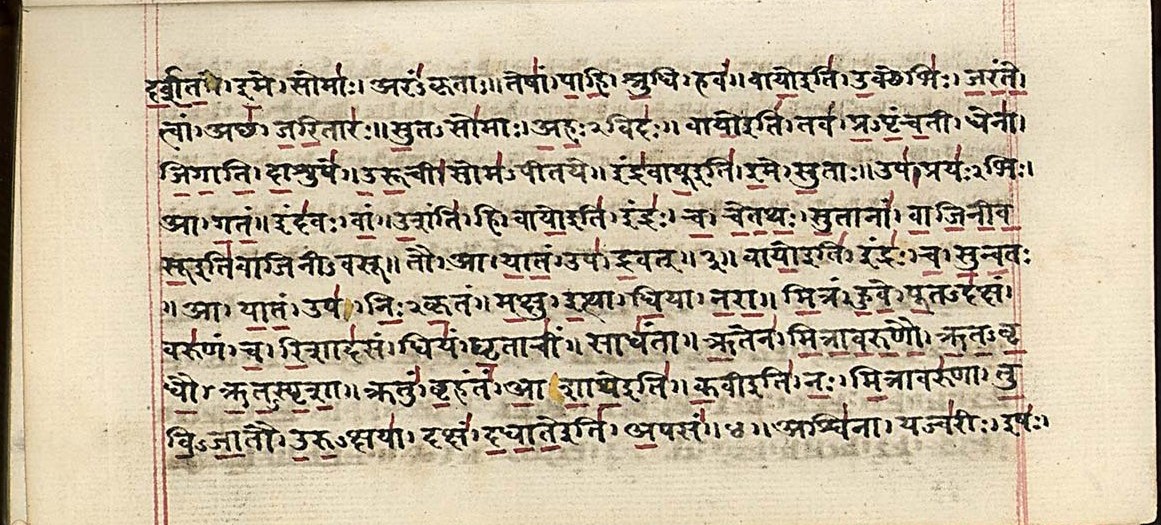 दर्शत। इमे। सोमाः। अरंऽकृताः॥ तेषां। पाहि। श्रुधि। हवं॥ वायो इति। उक्थेभिः। जरंते।
त्वां। अच्छ। जरितारः॥ सुतऽसोमाः। अहःऽविदः॥ वायो इति। तव। प्रऽपृंचती। धेना।
जिगाति। दाशुषे॥ उरूची। सोमऽपीतये॥ इंद्रवायू इति। इमे। सुताः॥ उप। प्रयःऽभिः।
आ। गतं॥ इंदवः। वां। उशंति। हि। वायो इति। इंद्रः। च। चेतथः। सुतानां। वाजिनीव
सू इति वाजिनीऽवसू॥ तौ। आ। यातं। उप। द्रवत्॥ ३॥ वायो इति। इंद्रः। च। सुन्वतः
॥ आ। यातं। उप। निःऽकृतं॥ मक्षु। इत्था। धिया। नरा॥ मित्रं। हुवे। पूतऽदक्षं।
वरुणं। च। रिशादसं। धियं। घृताचीं। साधंता॥ ऋतेन। मित्रावरुणौ। ऋतऽवृ
धौ। ऋतऽस्पृशा॥ क्रतुं। बृहंतं। आशाथे इति॥ कवी इति। नः। मित्रावरुणा। तु
विऽजातौ। उरुऽक्षया। दक्षं। दधाते इति। अपसं॥ ४॥ अश्विना। यज्वरीः। इषः।